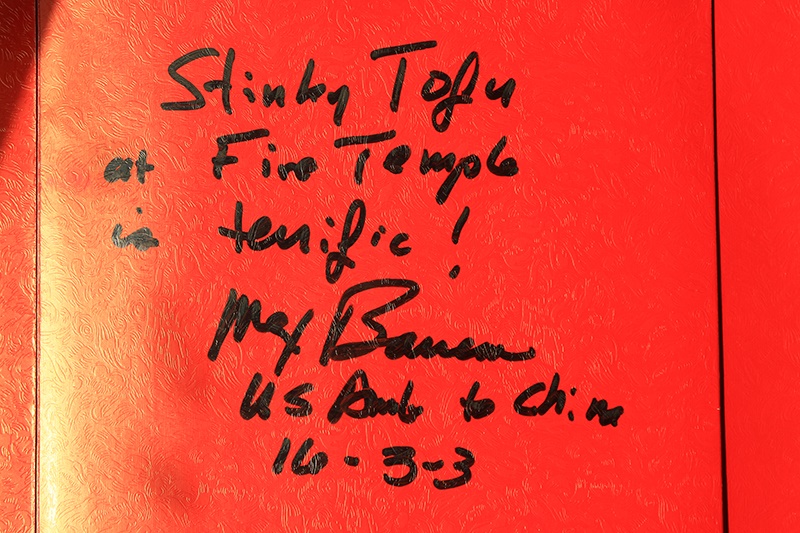 Stinky Tofu
at Fire Temple
is terrific!
Max Baucus
US Amb to China
16-3-3